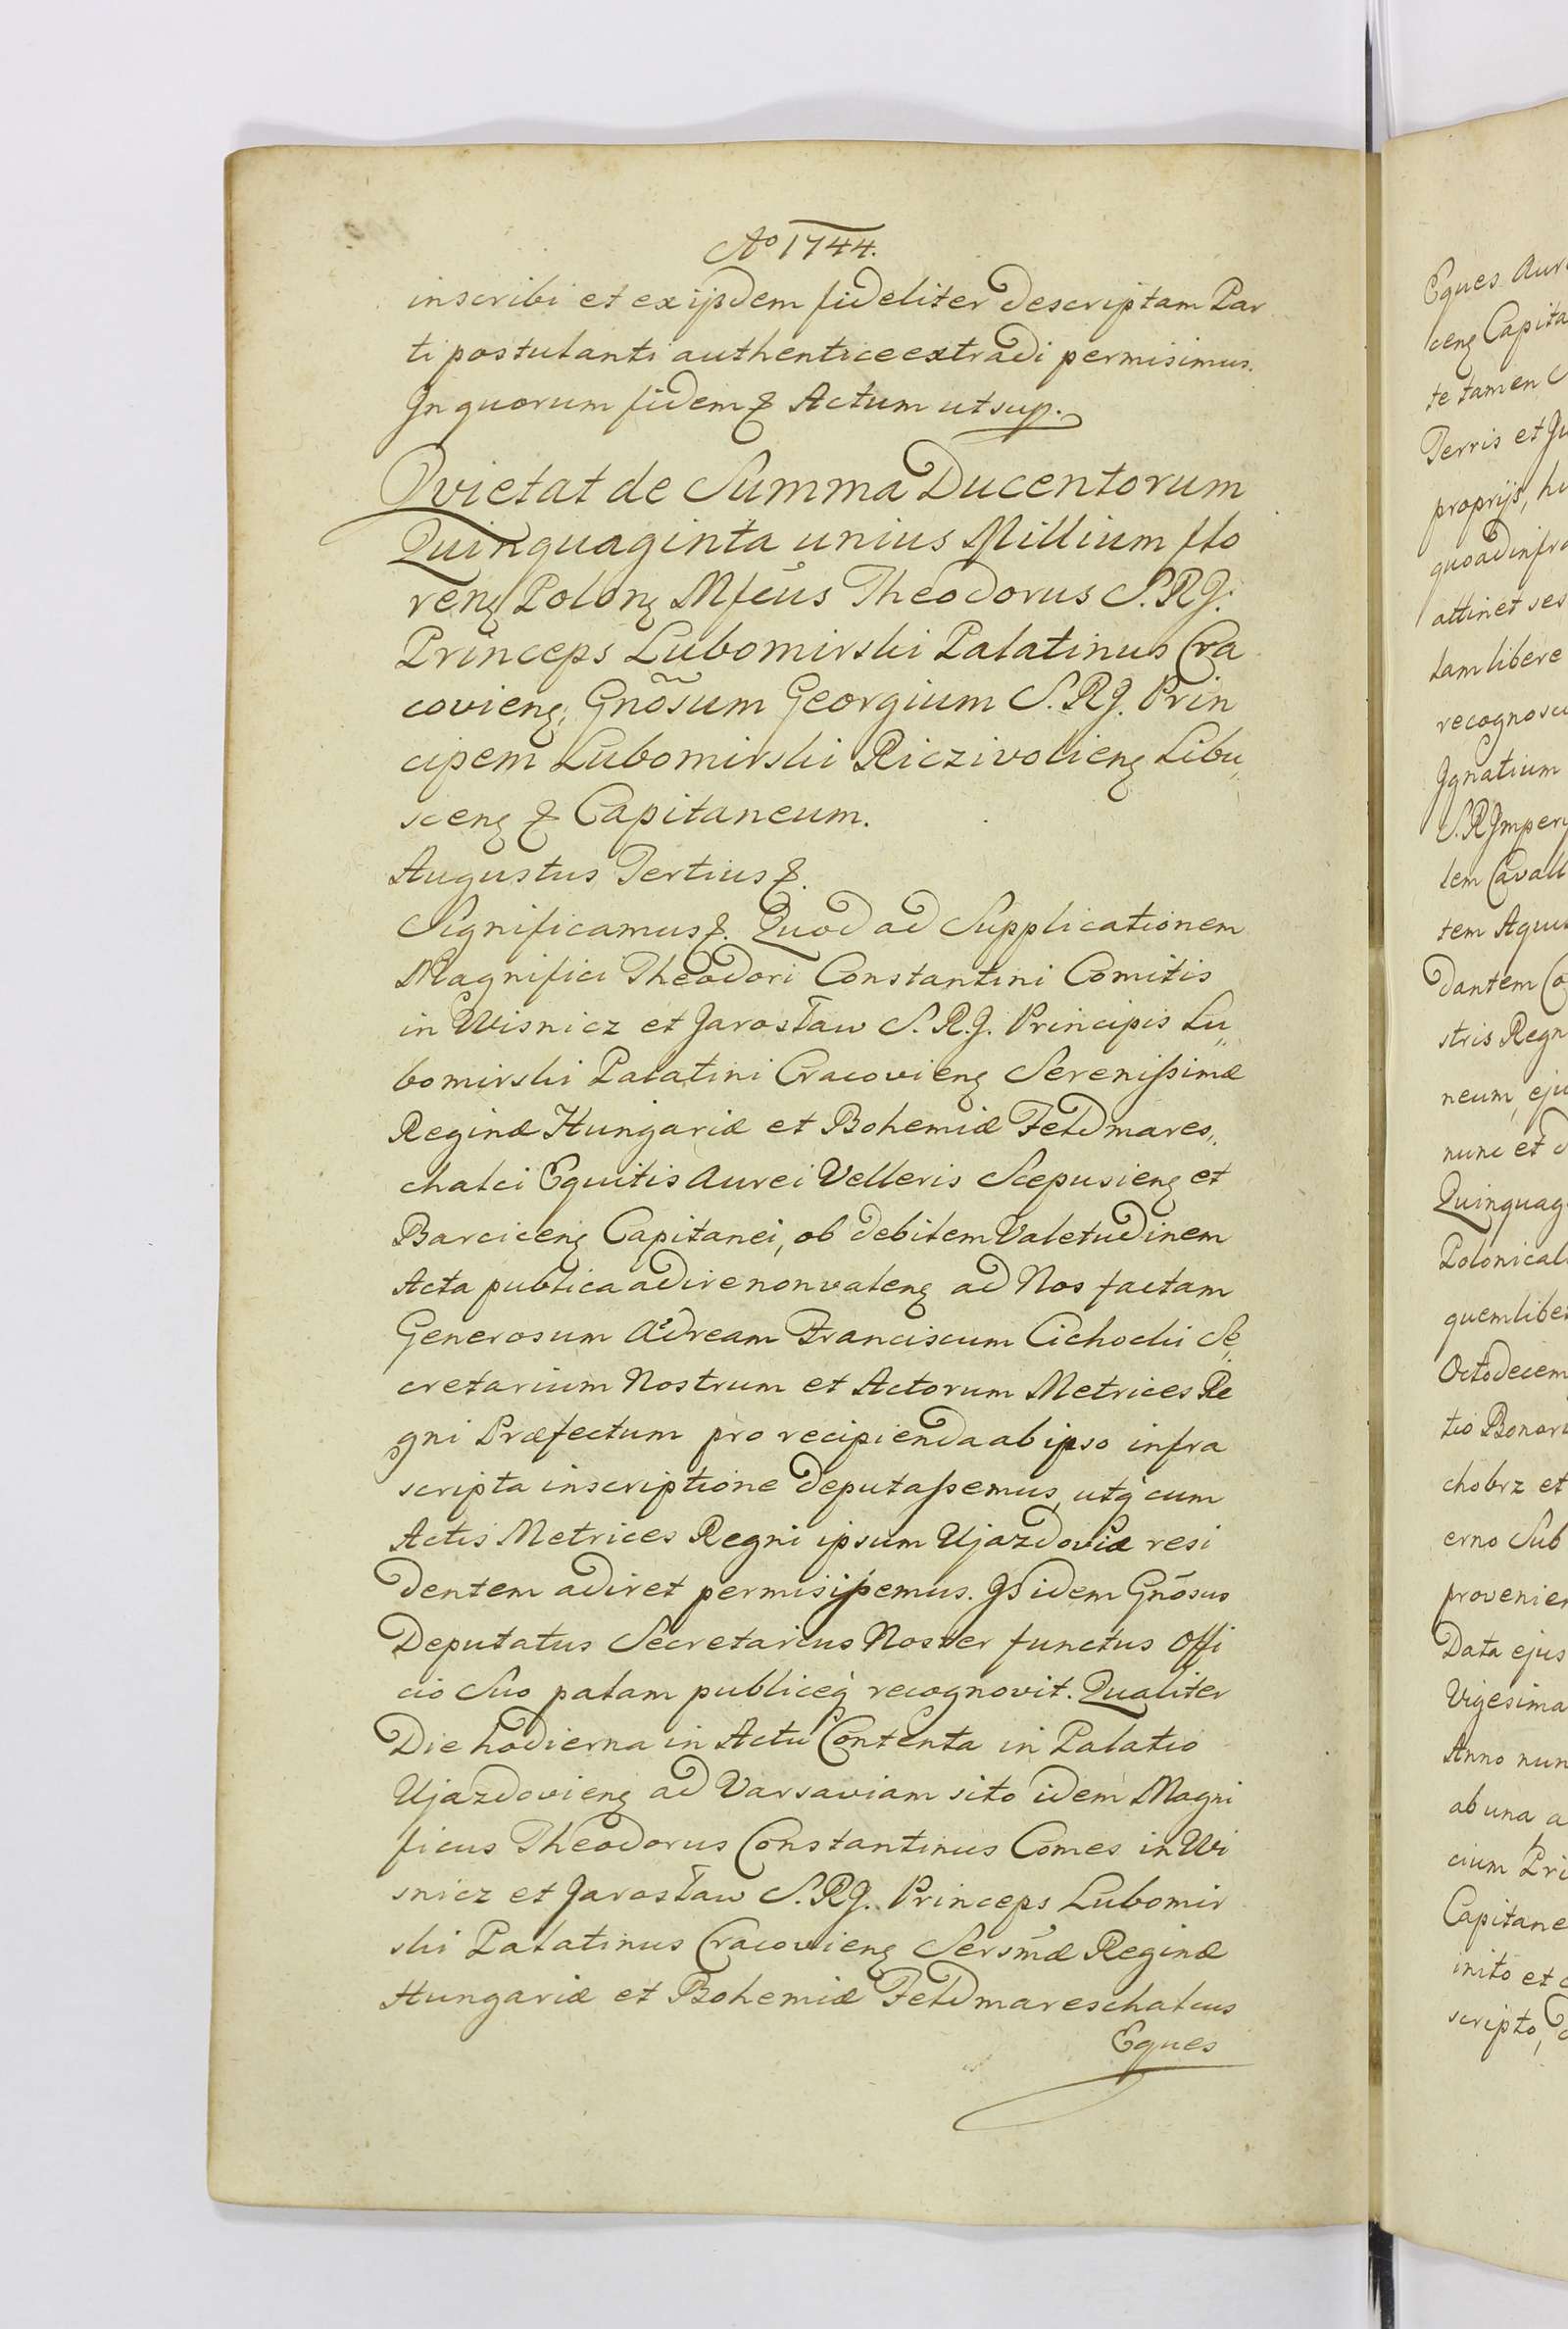 Ao 1744.
inscribi et ex ijsdem fideliter descriptam Par
ti postulanti authentice extradi permisimus.
In quorum fidem & Actum ut sup.
Qvietat de Summa Ducentorum
Quinquaginta unius Millium flo
renꝫ Polonꝫ Mfcus Theodorus S. R. J.
Princeps Lubomirski Palatinus Cra
covienꝫ, Gnõsum Georgium S. R. J. Prin
cipem Lubomirski Riczivolienꝫ Libu„
scenꝫ & Capitaneum.
Augustus Tertius &.
Significamus &. Quod ad Supplicationem
Magnifici Theodori Constantini Comitis
in Wisnicz et Jarosław S. R. J. Principis Lu„
bomirski Palatini Cracovienꝫ Serenissimæ
Reginæ Hungariæ et Bohemiæ Feldmares„
chalci Equitis Aurei Velleris Scepusienꝫ et
Barcicenꝫ Capitanei, ob debilem Valetudinem
Acta publica adire non valenꝫ ad Nos factam
Generosum Adream Franciscum Cichocki Se„
cretarium Nostrum et Actorum Metrices Re
gni Præfectum pro recipienda ab ipso infra
scripta inscriptione deputassemus, utq́ cum
Actis Metrices Regni ipsum Ujazdoviæ resi
dentem adiret permisissemus. Is idem Gnõsus
Deputatus Secretarius Noster functus offi
cio Suo palam publiceq́ recognovit. Qualiter
Die hodierna in Actu Contenta in Palatio
Ujazdovienꝫ ad Varsaviam sito idem Magni
ficus Theodorus Constantinus Comes in Wi
snicz et Jarosław S. R. J. Princeps Lubomir
ski Palatinus Cracovienꝫ Sersmæ Reginæ
Hungariæ et Bohemiæ Feldmareschalcus
Eques
Eques Aur
cenꝫ Capita
te tamen
Terris et Ju
proprijs, hu
quoad infra
attinet ses
lam libere
recognosci
Ignatium
S. R. Jmperij
lem Cavall
tem Aqui
dantem Co
stris Regn
neum, eju
nunc et d
Quinquag
Polonical
quemlibet
Octodecem
tio Bonor
chobrz et
erno Sub
provenien
Data ejus
Vigesima
Anno nun
ab una a
cium Pri
Capitane
inito et
scripto,